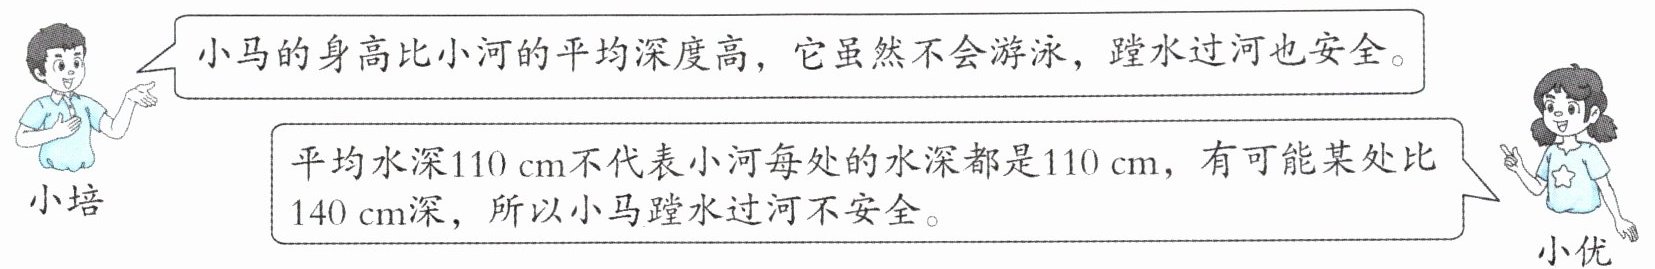 小马的身高比小河的平均深度高，它虽然不会游泳，蹚水过河也安全。
小培
平均水深110 cm不代表小河每处的水深都是110 cm，有可能某处比
140 cm深，所以小马蹚水过河不安全。
小优